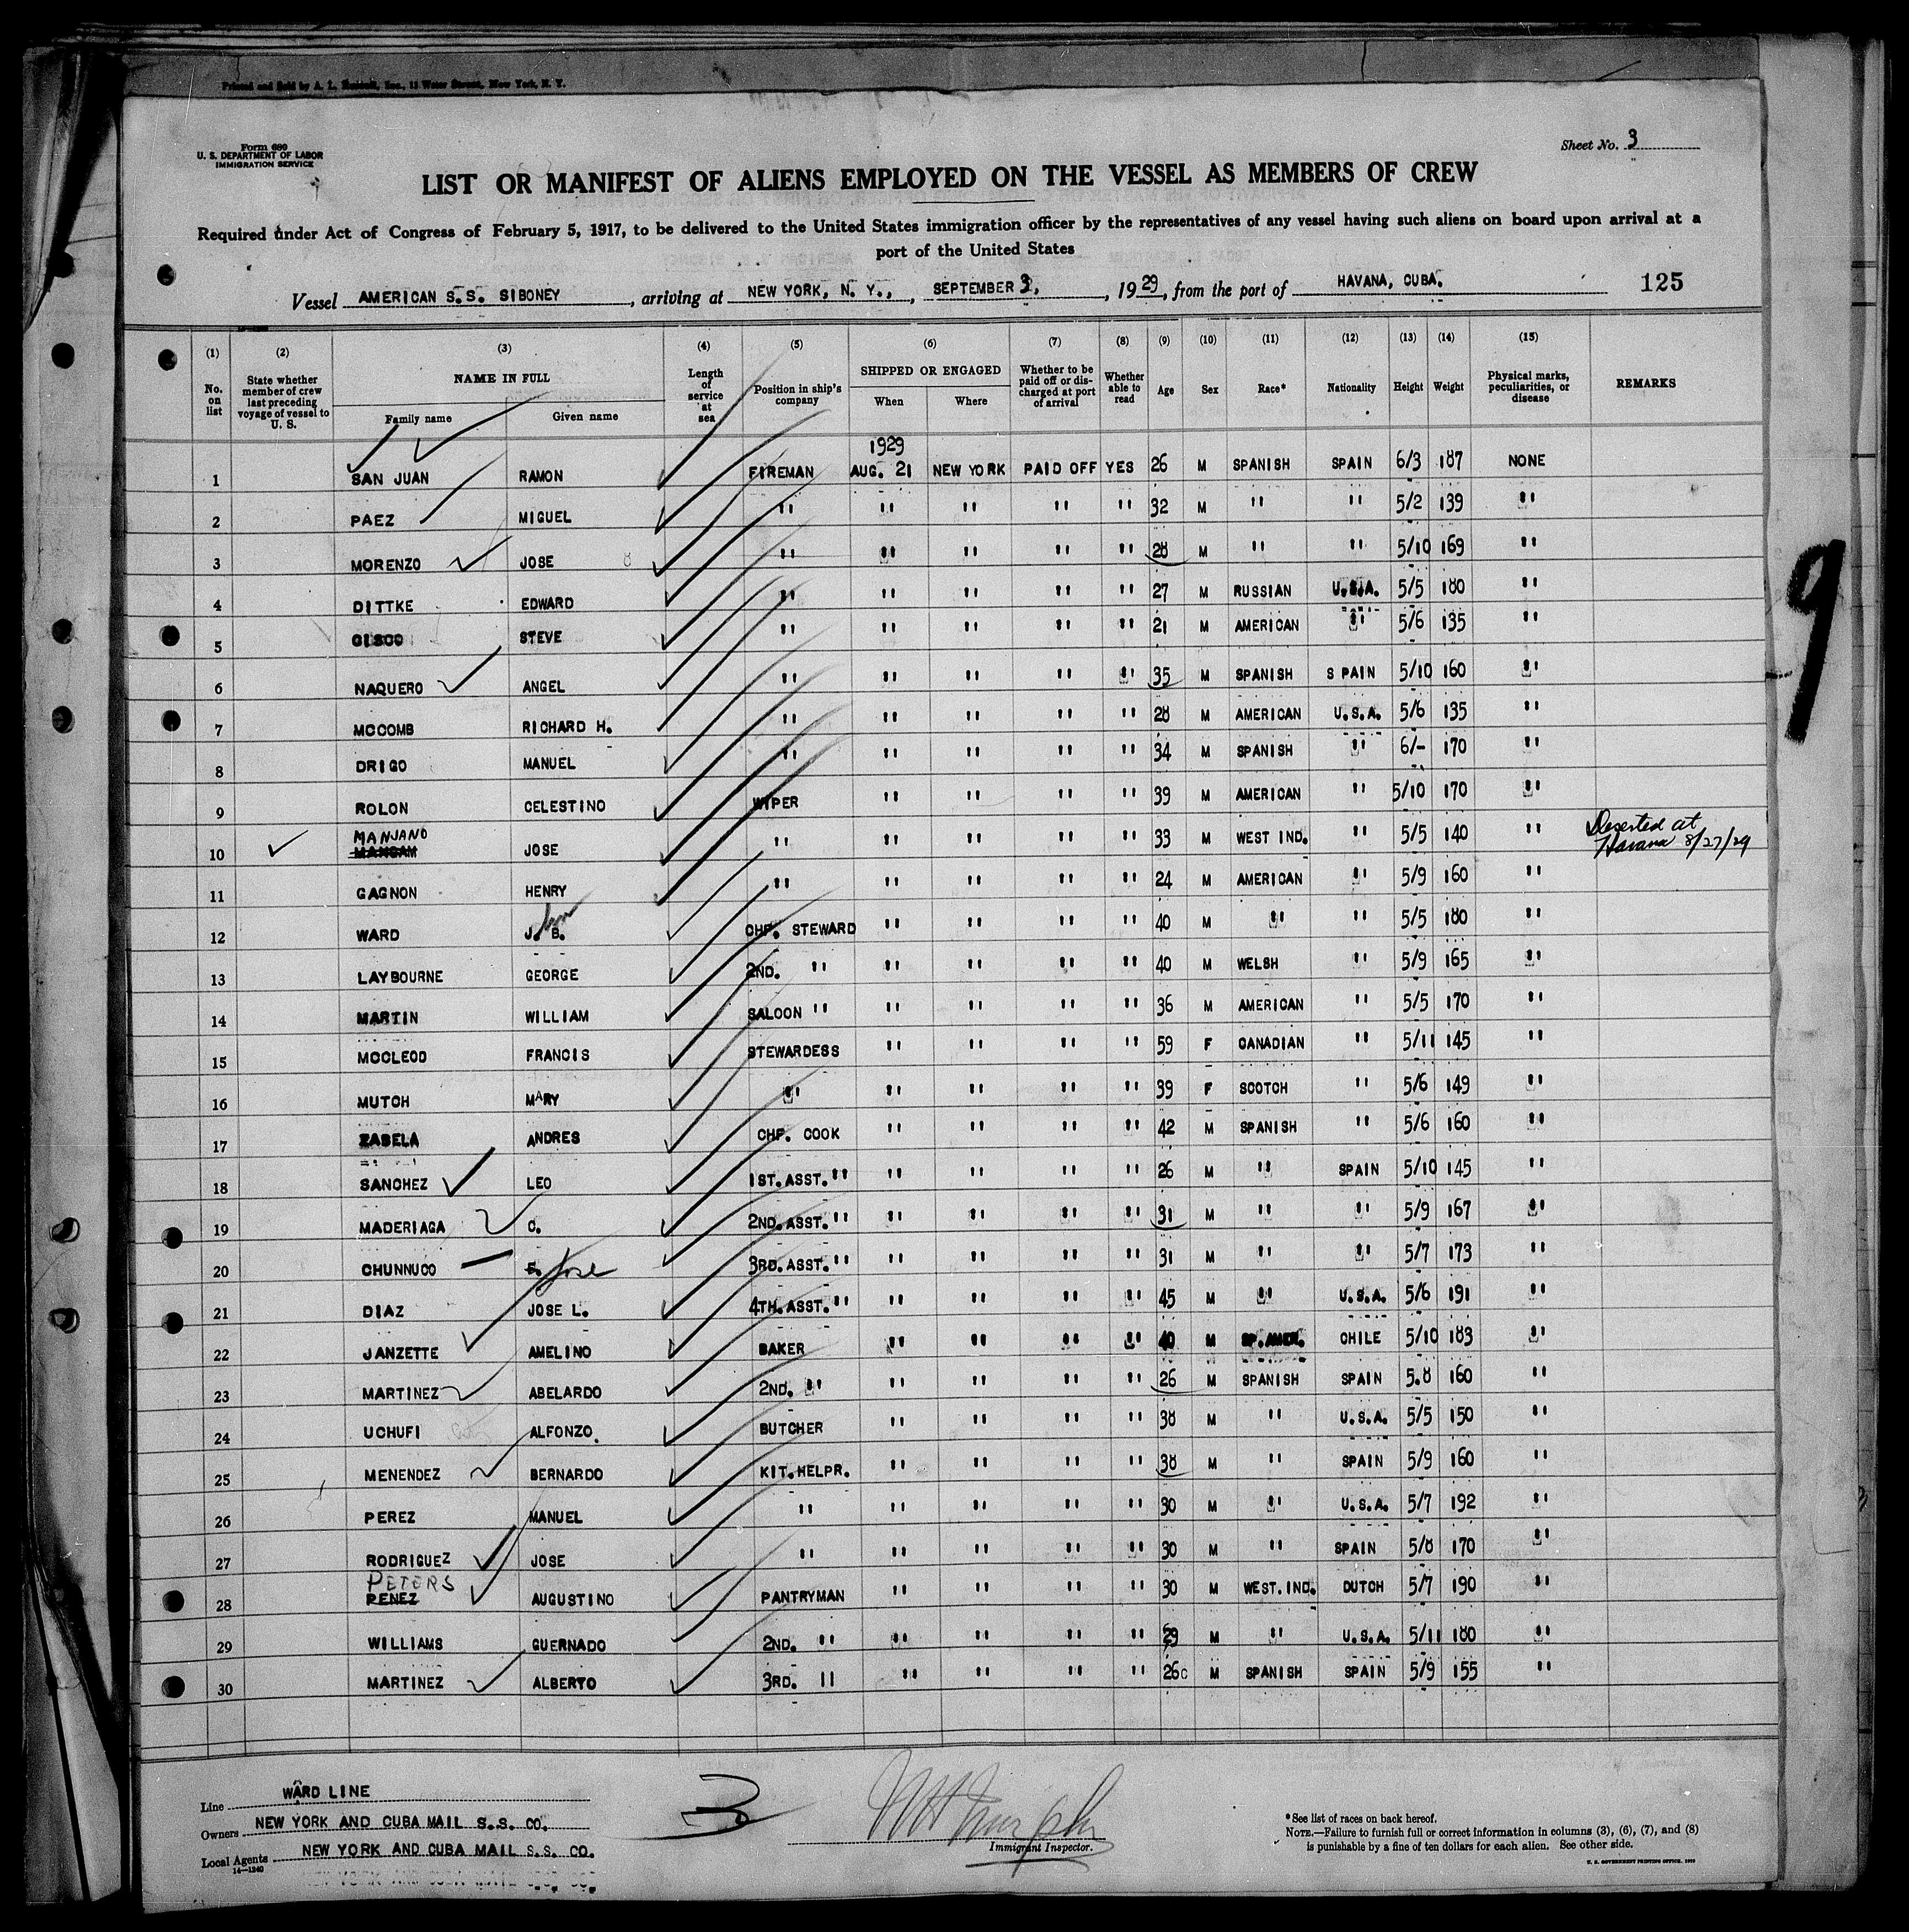 Printed and Sold by A. L. Russell, Inc., 11 Water Street, New York, N. Y.
Form 680
U. S. DEPARTMENT OF LABOR
IMMIGRATION SERVICE
Sheet No. 3
LIST OR MANIFEST OF ALIENS EMPLOYED ON THE VESSEL AS MEMBERS OF CREW
Required under Act of Congress of February 5, 1917, to be delivered to the United States immigration officer by the representatives of any vessel having such aliens on board upon arrival at a
port of the United States
Vessel AMERICAN S.S. SIBONEY, arriving at NEW YORK, N. Y., SEPTEMBER 3, 1929, from the port of HAVANA, CUBA. 125
(1) No. on list (2) State whether member of crew last preceding voyage of vessel to U. S. (3) NAME IN FULL Family name Given name (4) Length of service at sea (5) Position in ship's company (6) SHIPPED OR ENGAGED When Where (7) Whether to be paid off or discharged at port of arrival (8) Whether able to read (9) Age (10) Sex (11) Race* (12) Nationality (13) Height (14) Weight (15) Physical marks, peculiarities, or disease REMARKS
1929
1 SAN JUAN RAMON FIREMAN AUG. 21 NEW YORK PAID OFF YES 26 M SPANISH SPAIN 6/3 187 NONE
2 PAEZ MIGUEL " " " " " 32 M " " 5/2 139 "
3 MORENZO JOSE " " " " " 28 M " " 5/10 169 "
4 DITTKE EDWARD " " " " " 27 M RUSSIAN U.S.A. 5/5 180 "
5 CISCO STEVE " " " " " 21 M AMERICAN " 5/6 135 "
6 NAQUERO ANGEL " " " " " 35 M SPANISH S PAIN 5/10 160 "
7 MCCOMB RICHARD H. " " " " " 28 M AMERICAN U.S.A. 5/6 135 "
8 DRIGO MANUEL " " " " " 34 M SPANISH " 6/- 170 "
9 ROLON CELESTINO WIPER " " " " 39 M AMERICAN " 5/10 170 "
10 MANJANO MANGAM JOSE " " " " " 33 M WEST IND. " 5/5 140 " Deserted at Havana 8/27/29
11 GAGNON HENRY " " " " " 24 M AMERICAN " 5/9 160 "
12 WARD J. B. CHF. STEWARD " " " " 40 M " " 5/5 180 "
13 LAYBOURNE GEORGE 2ND. " " " " " 40 M WELSH " 5/9 165 "
14 MARTIN WILLIAM SALOON " " " " " 36 M AMERICAN " 5/5 170 "
15 MCCLEOD FRANCIS STEWARDESS " " " " 59 F CANADIAN " 5/11 145 "
16 MUTCH MARY " " " " " 39 F SCOTCH " 5/6 149 "
17 ZABELA ANDRES CHF. COOK " " " " 42 M SPANISH " 5/6 160 "
18 SANCHEZ LEO 1ST. ASST. " " " " " 26 M " SPAIN 5/10 145 "
19 MADERIAGA C. 2ND. ASST. " " " " " 31 M " " 5/9 167 "
20 CHUNNUCO E. Jose 3RD. ASST. " " " " " 31 M " " 5/7 173 "
21 DIAZ JOSE L. 4TH. ASST. " " " " " 45 M " U.S.A. 5/6 191 "
22 JANZETTE AMELINO BAKER " " " " 40 M SP. AMER. CHILE 5/10 183 "
23 MARTINEZ ABELARDO 2ND. " " " " " 26 M SPANISH SPAIN 5.8 160 "
24 UCHUFI ALFONZO. BUTCHER " " " " 38 M " U.S.A. 5/5 150 "
25 MENENDEZ BERNARDO KIT.HELPR. " " " " 38 M " SPAIN 5/9 160 "
26 PEREZ MANUEL " " " " " 30 M " U.S.A. 5/7 192 "
27 RODRIGUEZ JOSE " " " " " 30 M " SPAIN 5/8 170 "
28 PETERS PENEZ AUGUSTINO PANTRYMAN " " " " 30 M WEST. IND. DUTCH 5/7 190 "
29 WILLIAMS GUERNADO 2ND. " " " " " 29 M " U.S.A. 5/11 180 "
30 MARTINEZ ALBERTO 3RD. 11 " " " " 26c M SPANISH SPAIN 5/9 155 "
9
Line WARD LINE
Owners NEW YORK AND CUBA MAIL S.S. CO.
Local Agents NEW YORK AND CUBA MAIL S.S. CO.
14—1240
3
Immigrant Inspector.
*See list of races on back hereof.
NOTE.—Failure to furnish full or correct information in columns (3), (6), (7), and (8)
is punishable by a fine of ten dollars for each alien. See other side.
U. S. GOVERNMENT PRINTING OFFICE